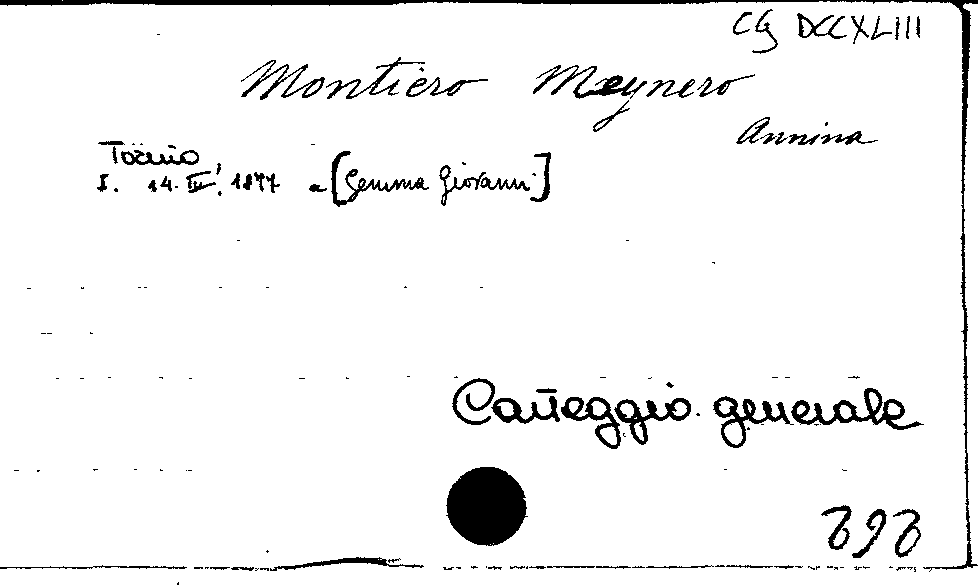 CG DCCXLIII
Montiero Meynero
Annina
Torino,
I. 14. IV. 1877 a [Gemma Giovanni]
Carteggio generale
898